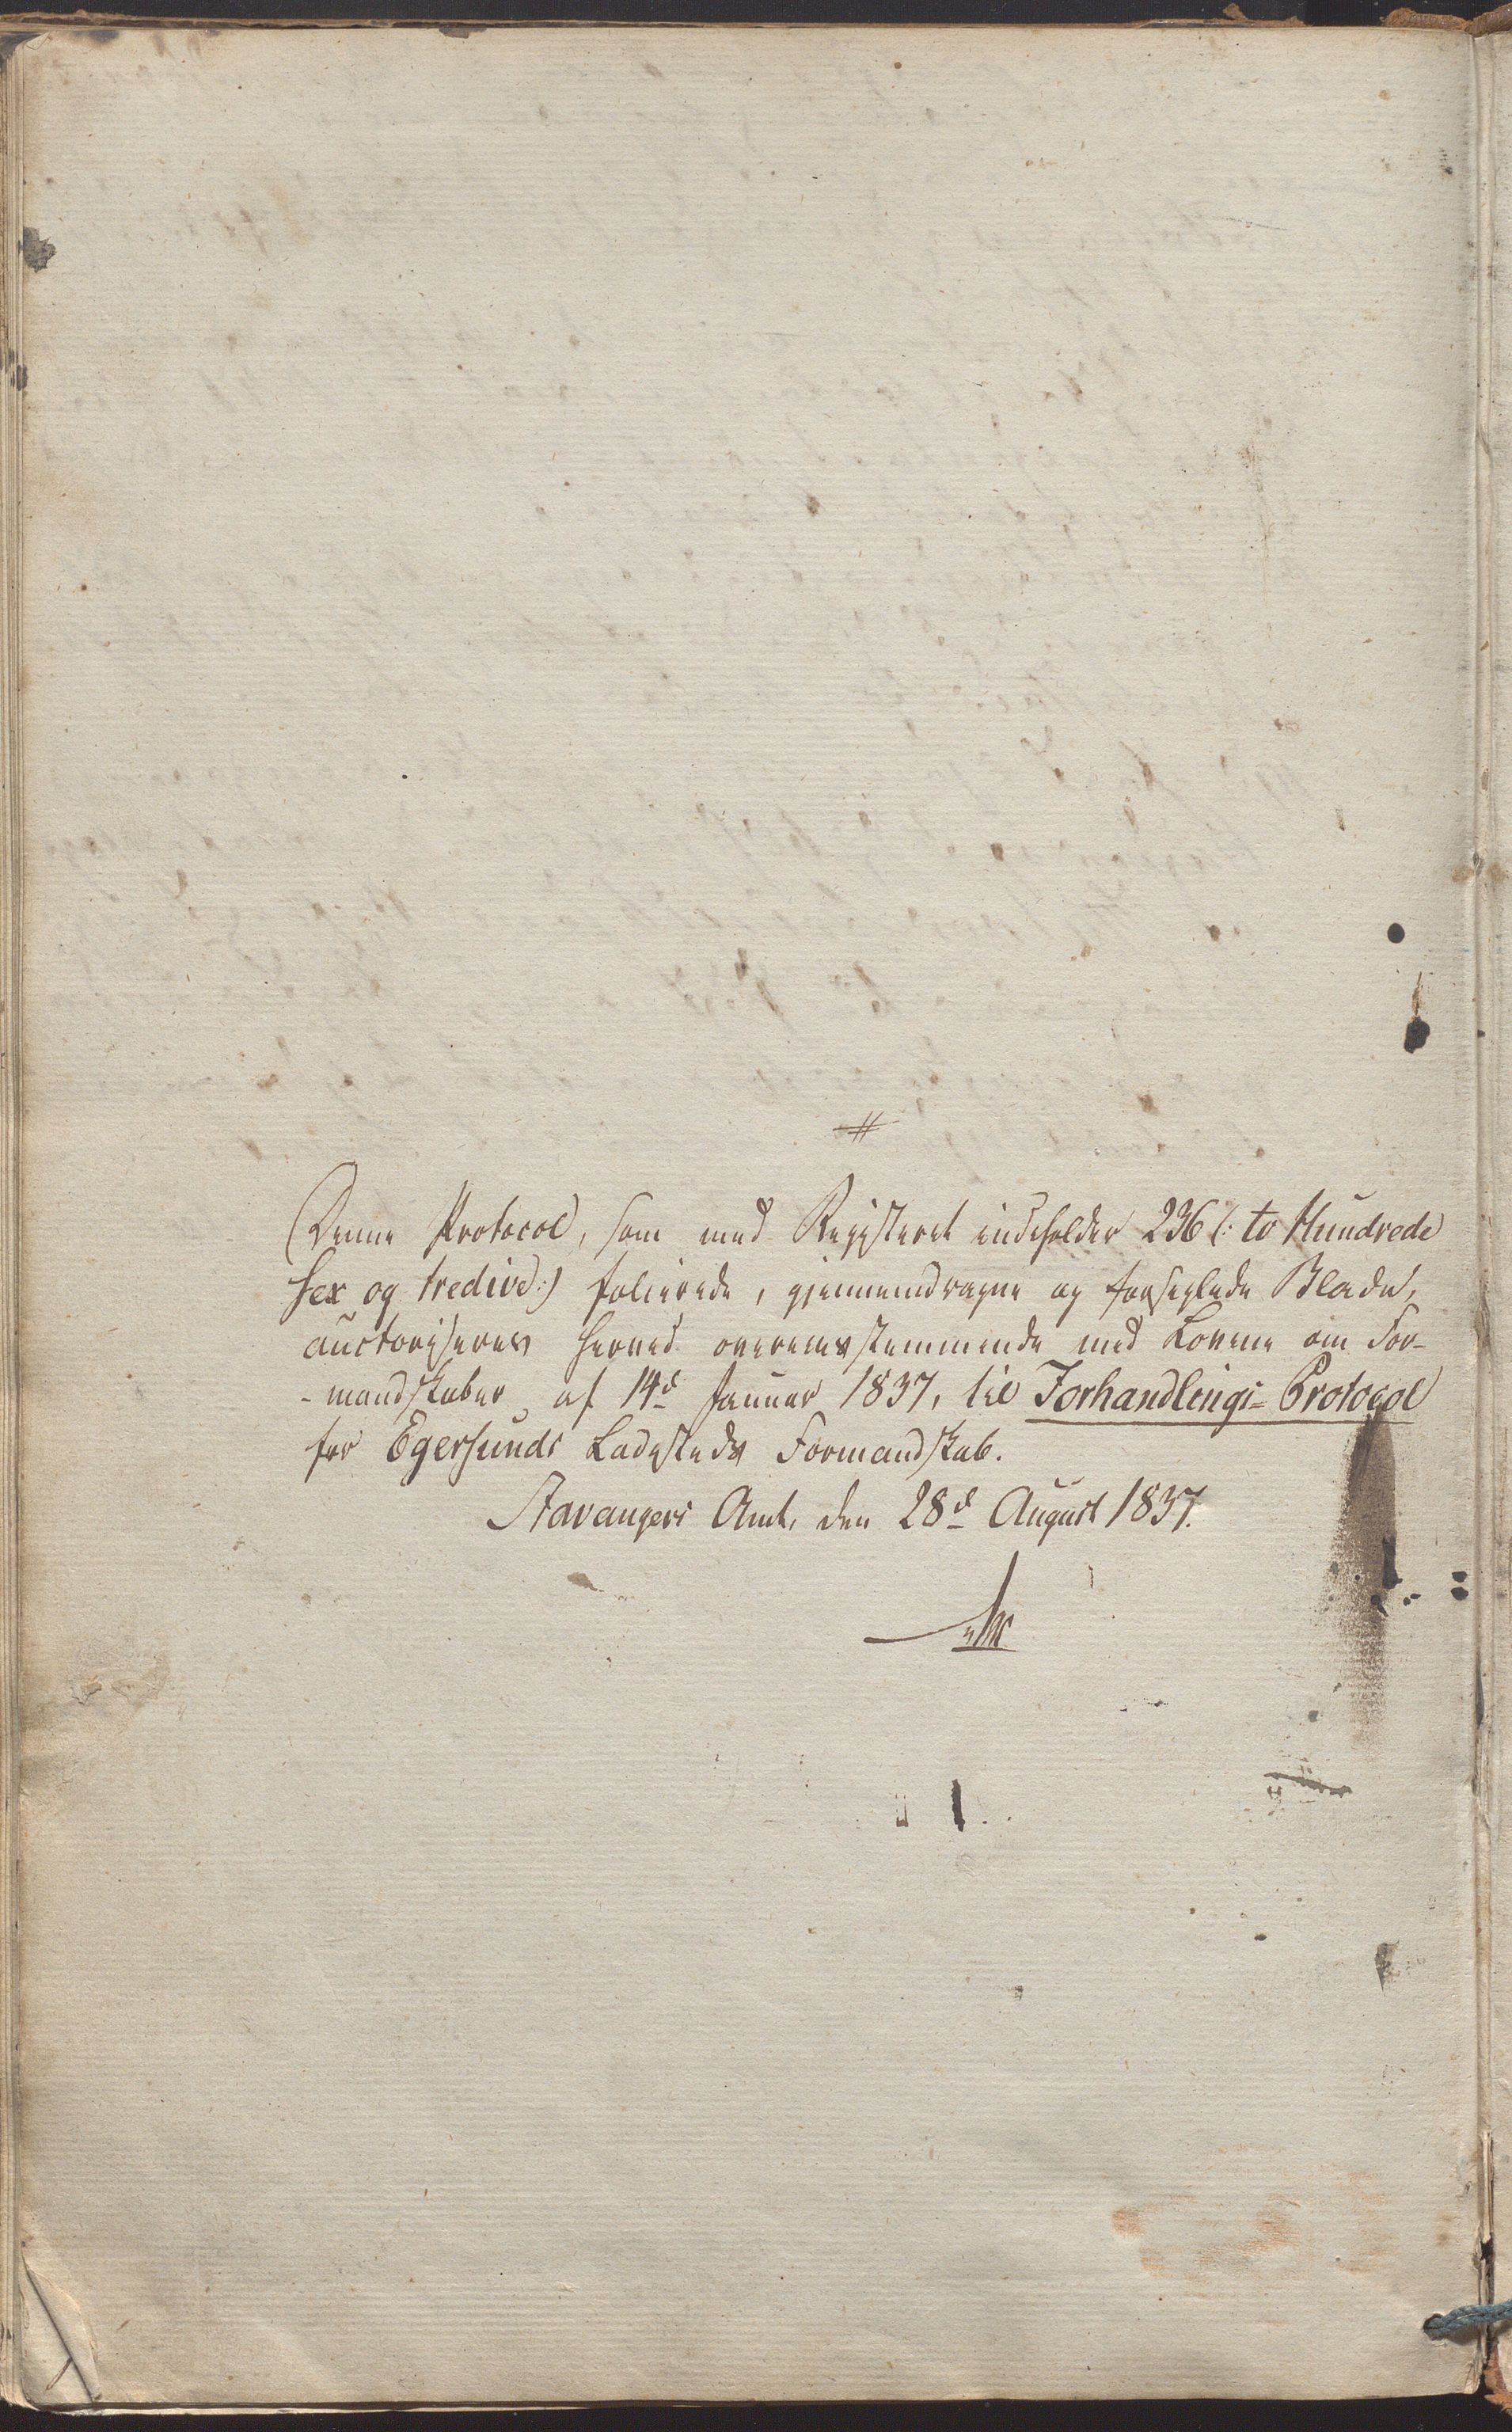 Denne Protocol, som med Registeret indeholder 236 (: to Hundrede
sex og tredive :) folierede, gjennemdragne og forseglede Blade,
auctoriseres herved overensstemmende med Lovene om For-
-mandskaber af 14d Januar 1837, til Forhandlings-Protocol
for Egersunds Ladesteds Formandskab.
Stavangers Amt, den 28d August 1837.